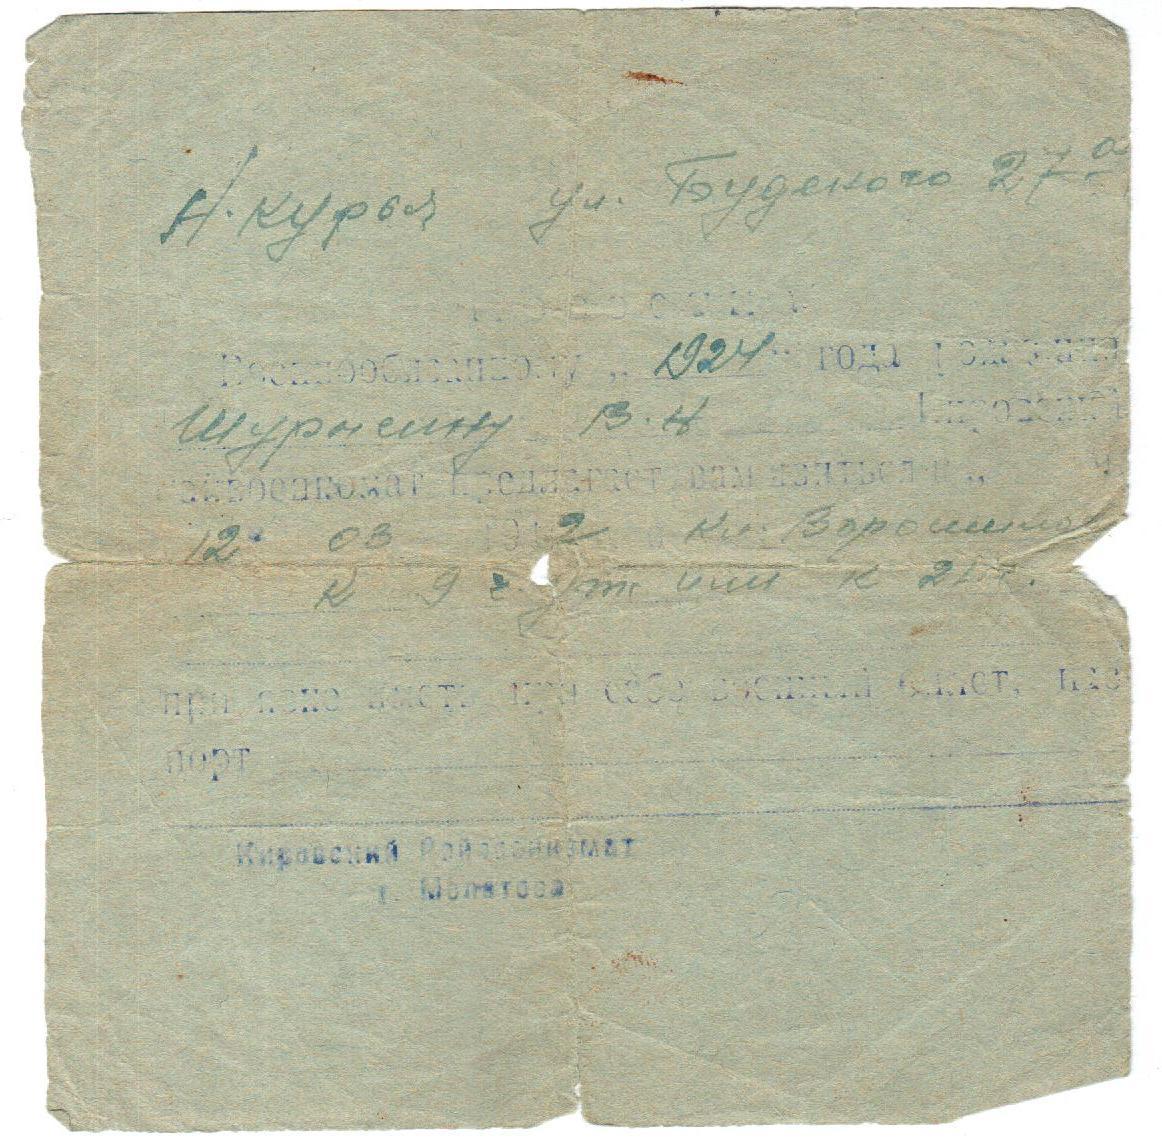 Н. Курья ул. Буденого 27а
Военнообязанному " 1924 " года рождени
Шурысину В. Н Кировский
райвоенкомат предлагает вам явиться в "
12 03 1942 кл. Ворошилов
к 9 ч. ут или к 21 ч.
при себе военный билет, пас
порт
Кировский Райвоенкомат
г. Молотова